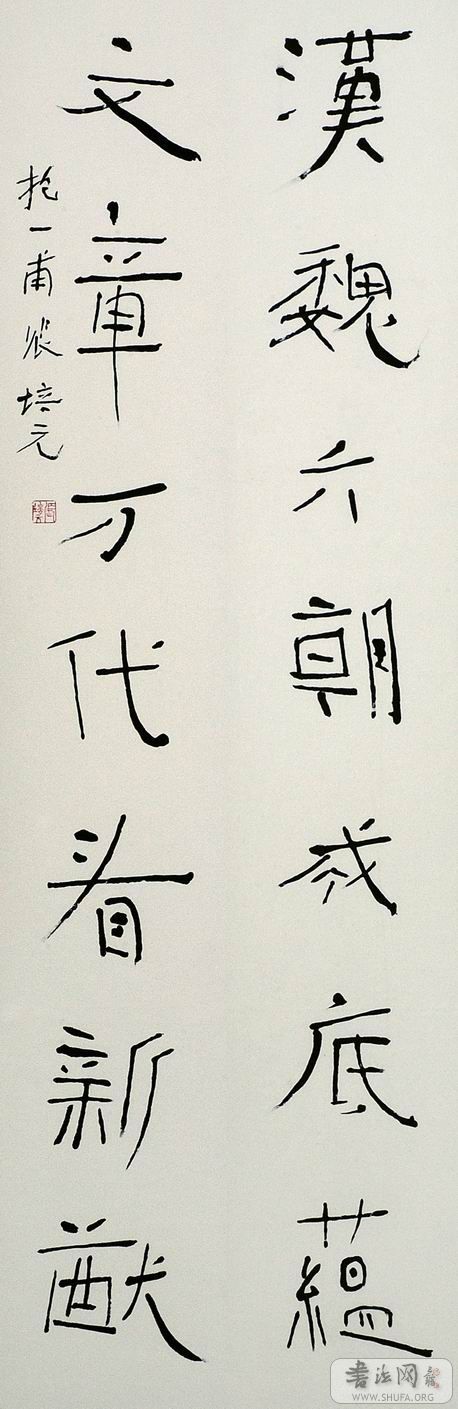 漢魏六朝成底蘊
文章万代看新猷
抱一甫張培元
書法网
WWW.SHUFA.ORG